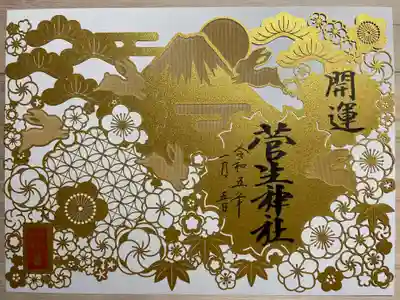 開運
菅生神社
令和五年
一月五日